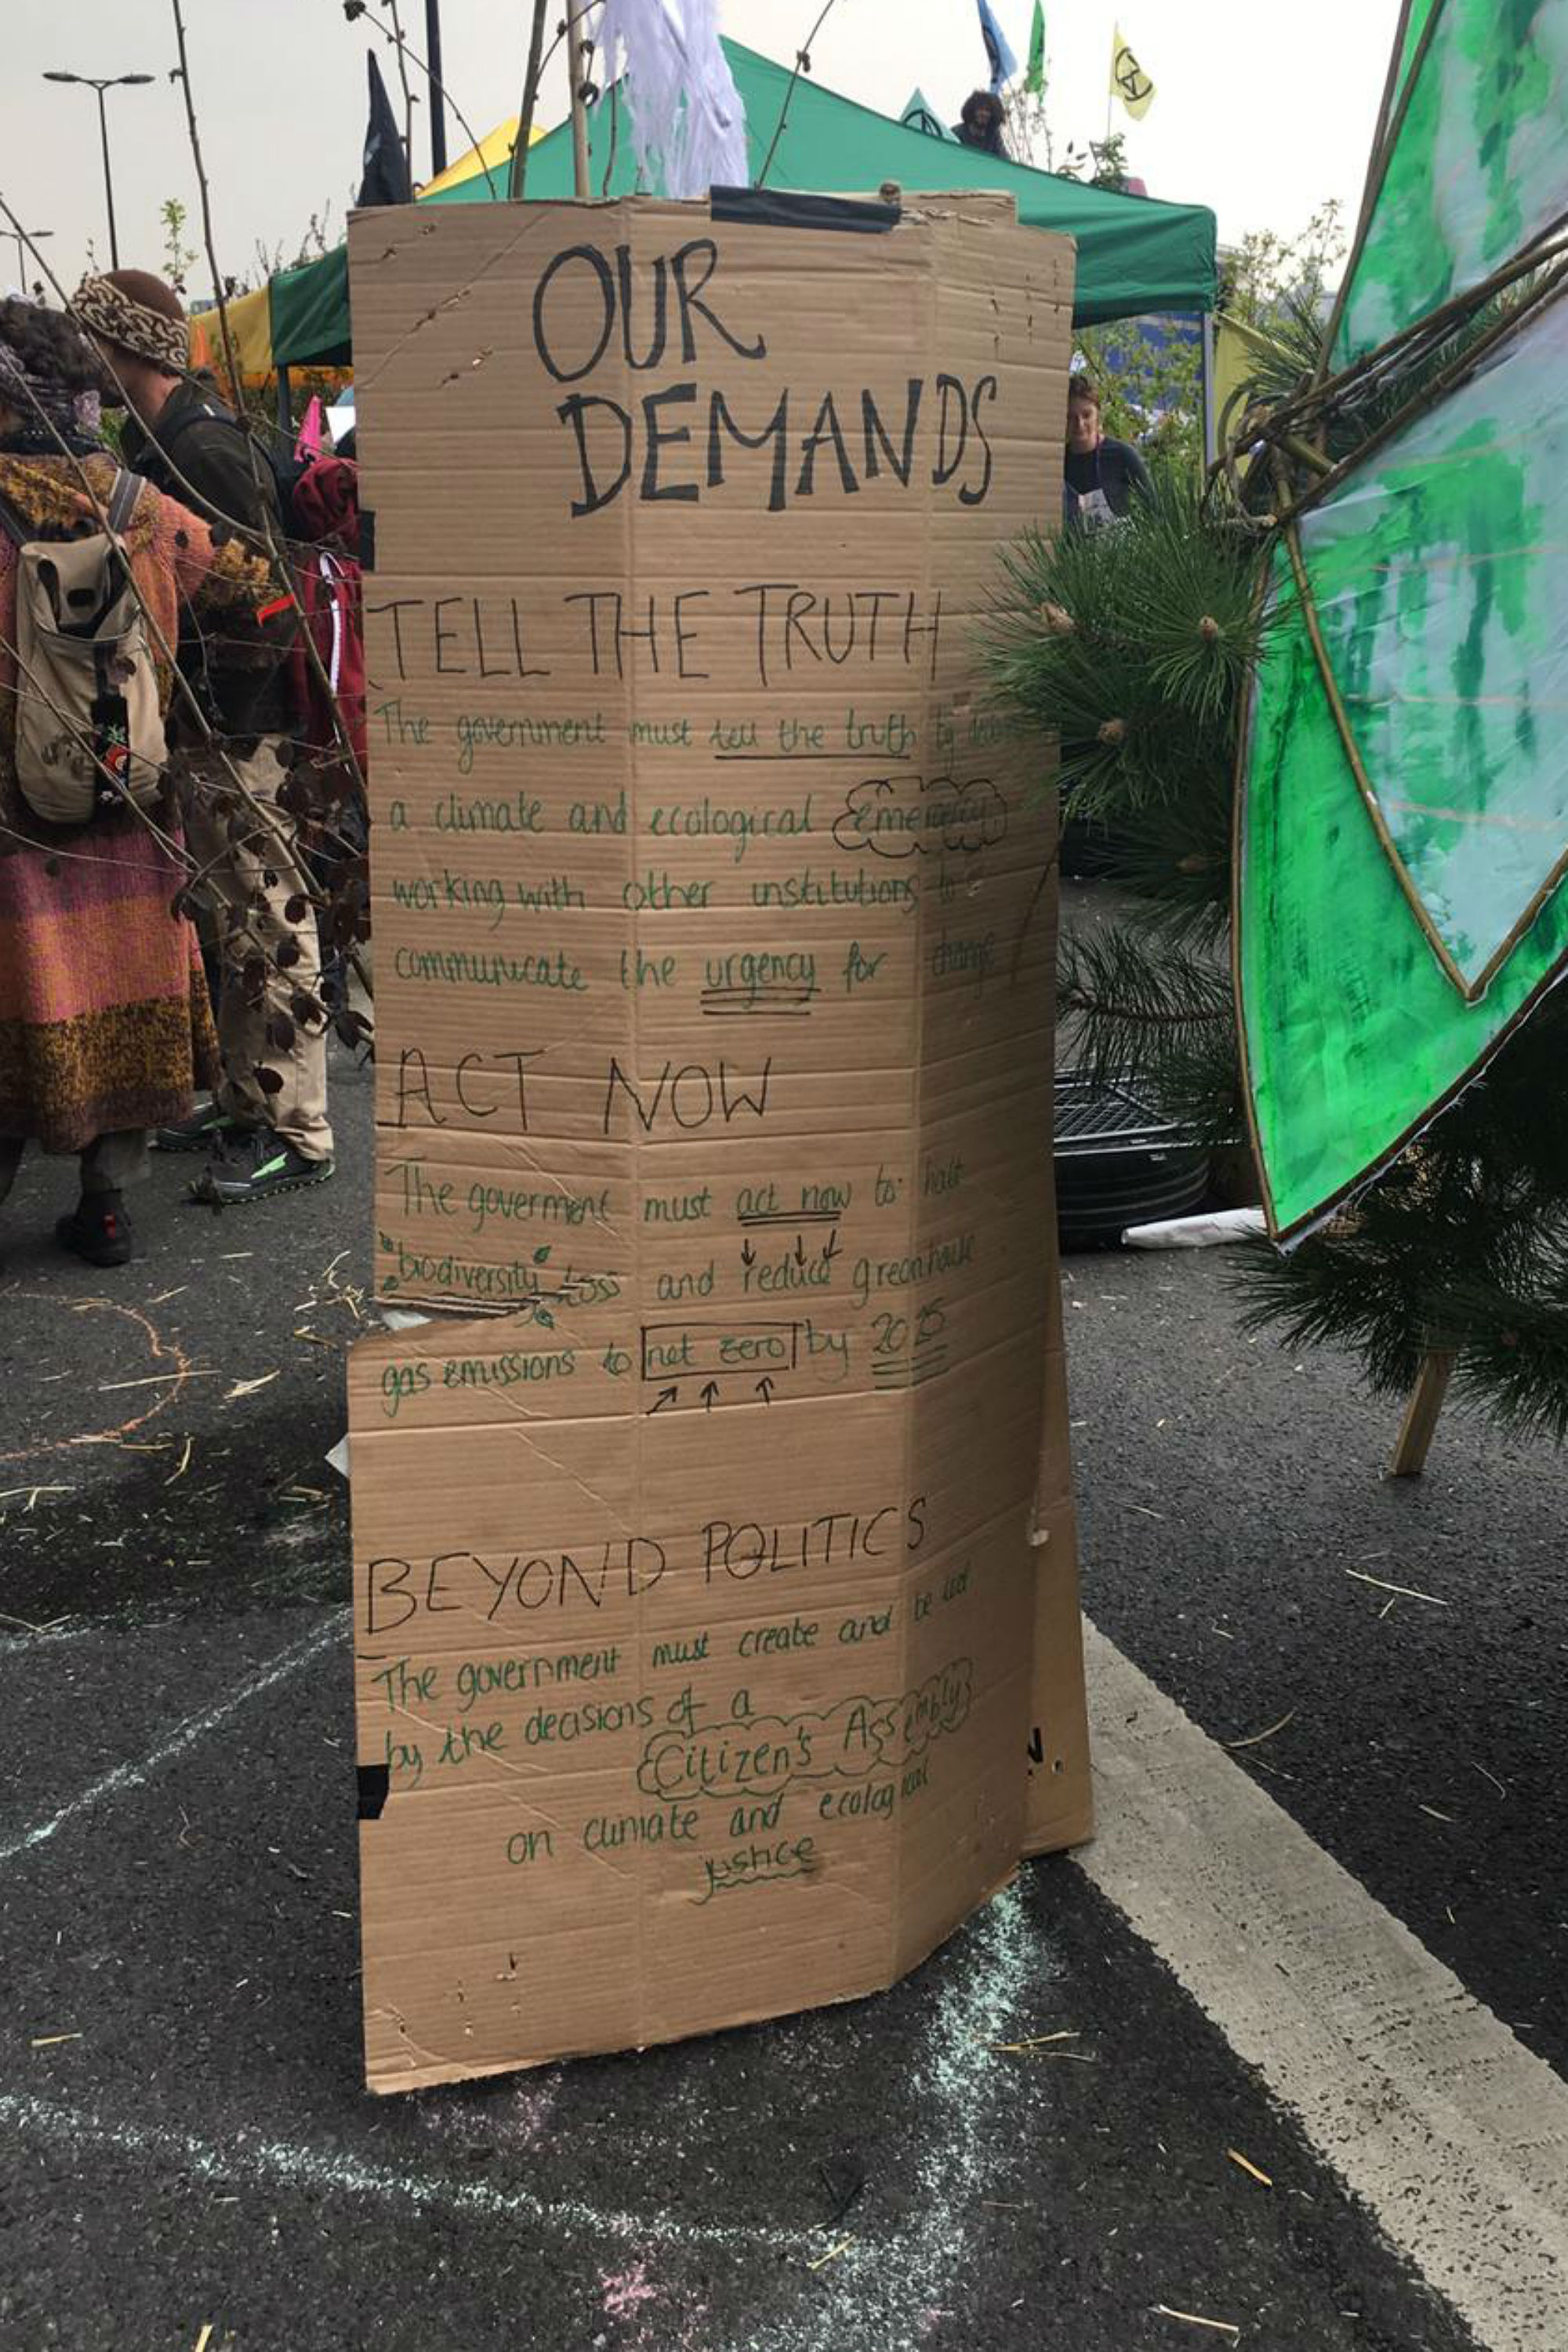 OUR
DEMANDS
TELL THE TRUTH
The government must tell the truth by
a climate and ecological emergency
working with other institutions to
communicate the urgency for change
ACT NOW
The goverment must act now to halt
biodiversity loss and reduce greenhouse
gas emissions to net zero by 2025
BEYOND POLITICS
The government must create and be led
by the decisions of a
Citizen's Assembly
on climate and ecological
justice